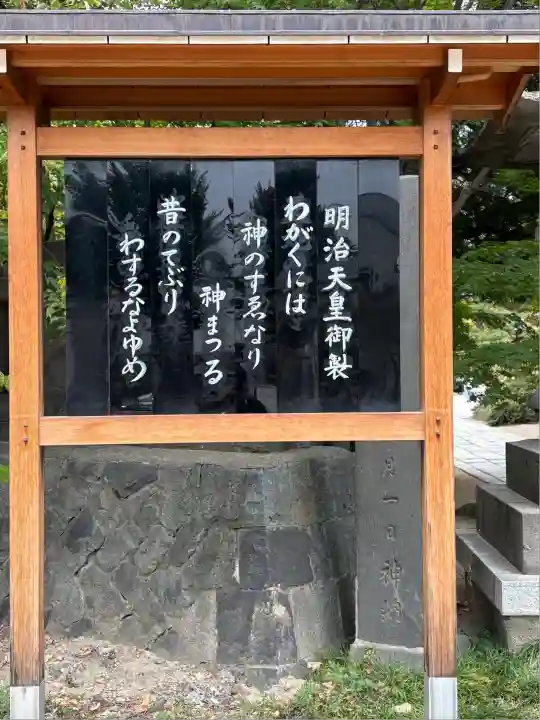 明治天皇御製
わがくには
神のすゑなり
神まつる
昔のてぶり
わするなよゆめ
月一日神納